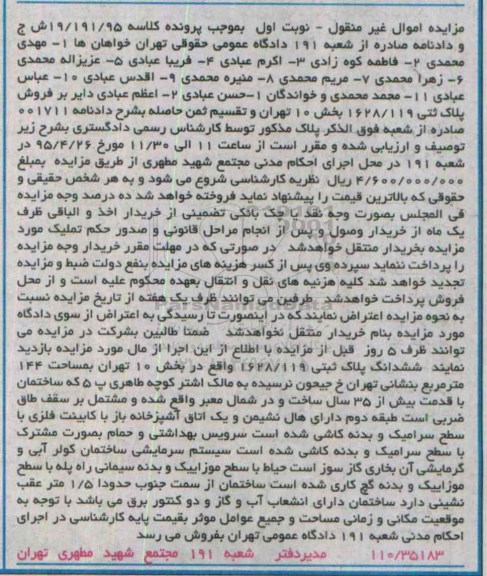 مزایده اموال غیر منقول - نوبت اول بموجب پرونده کلاسه ۱۹/۱۹۱/۹۵ش ج
و دادنامه صادره از شعبه ۱۹۱ دادگاه عمومی حقوقی تهران خواهان ها ۱- مهدی
محمدی ۲- فاطمه کوه زادی ۳- اکرم عبادی ۴- فریبا عبادی ۵- عزیزاله محمدی
۶- زهرا محمدی ۷- مریم محمدی ۸- منیره محمدی ۹- اقدس عبادی ۱۰- عباس
عبادی ۱۱- محمد محمدی و خواندگان ۱-حسن عبادی ۲- اعظم عبادی دایر بر فروش
پلاک ثتی ۱۶۲۸/۱۱۹ بخش ۱۰ تهران و تقسیم ثمن حاصله بشرح دادنامه ۰۰۱۷۱۱
صادره از شعبه فوق الذکر پلاک مذکور توسط کارشناس رسمی دادگستری بشرح زیر
توصیف و ارزیابی شده و مقرر است از ساعت ۱۱ الی ۱۱/۳۰ مورخ ۹۵/۴/۲۶ در
شعبه ۱۹۱ در محل اجرای احکام مدنی مجتمع شهید مطهری از طریق مزایده بمبلغ
۴/۶۰۰/۰۰۰/۰۰۰ ریال نظریه کارشناسی شروع می شود و به هر شخص حقیقی و
حقوقی که بالاترین قیمت را پیشنهاد نماید فروخته خواهد شد ده درصد وجه مزایده
فی المجلس بصورت وجه نقد یا چک بانکی تضمینی از خریدار اخذ و الباقی ظرف
یک ماه از خریدار وصول و پس از انجام مراحل قانونی و صدور حکم تملیک مورد
مزایده بخریدار منتقل خواهدشد در صورتی که در مهلت مقرر خریدار وجه مزایده
را پرداخت ننماید سپرده وی پس از کسر هزینه های مزایده بنفع دولت ضبط و مزایده
تجدید خواهد شد کلیه هزنیه های نقل و انتقال بعهده محکوم علیه است و از محل
فروش پرداخت خواهدشد طرفین می توانند ظرف یک هفته از تاریخ مزایده نسبت
به نحوه مزایده اعتراض نمایند که در اینصورت تا رسیدگی به اعتراض از سوی دادگاه
مورد مزایده بنام خریدار منتقل نخواهدشد ضمنا طالبین بشرکت در مزایده می
توانند ظرف ۵ روز قبل از مزایده با اطلاع از این اجرا از مال مورد مزایده بازدید
نمایند ششدانگ پلاک ثبتی ۱۶۲۸/۱۱۹ واقع در بخش ۱۰ تهران بمساحت ۱۴۴
مترمربع بنشانی تهران خ جیحون نرسیده به مالک اشتر کوچه طاهری پ ۵ که ساختمان
با قدمت بیش از ۳۵ سال ساخت و در شمال معبر واقع شده و مشتمل بر سقف طاق
ضربی است طبقه دوم دارای هال نشیمن و یک اتاق آشپزخانه باز با کابینت فلزی با
سطح سرامیک و بدنه کاشی شده است سرویس بهداشتی و حمام بصورت مشترک
با سطح سرامیک و بدنه کاشی شده است سیستم سرمایشی ساختمان کولر آبی و
گرمایشی آن بخاری گاز سوز است حیاط با سطح موزاییک و بدنه سیمانی راه پله با سطح
موزاییک و بدنه گچ کاری شده است ساختمان از سمت جنوب حدودا ۱/۵ متر عقب
نشینی دارد ساختمان دارای انشعاب آب و گاز و دو کنتور برق می باشد با توجه به
موقعیت مکانی و زمانی مساحت و جمیع عوامل موثر بقیمت پایه کارشناسی در اجرای
احکام مدنی شعبه ۱۹۱ دادگاه عمومی تهران بفروش می رسد
۱۱۰/۳۵۱۸۳ مدیردفتر شعبه ۱۹۱ مجتمع شهید مطهری تهران